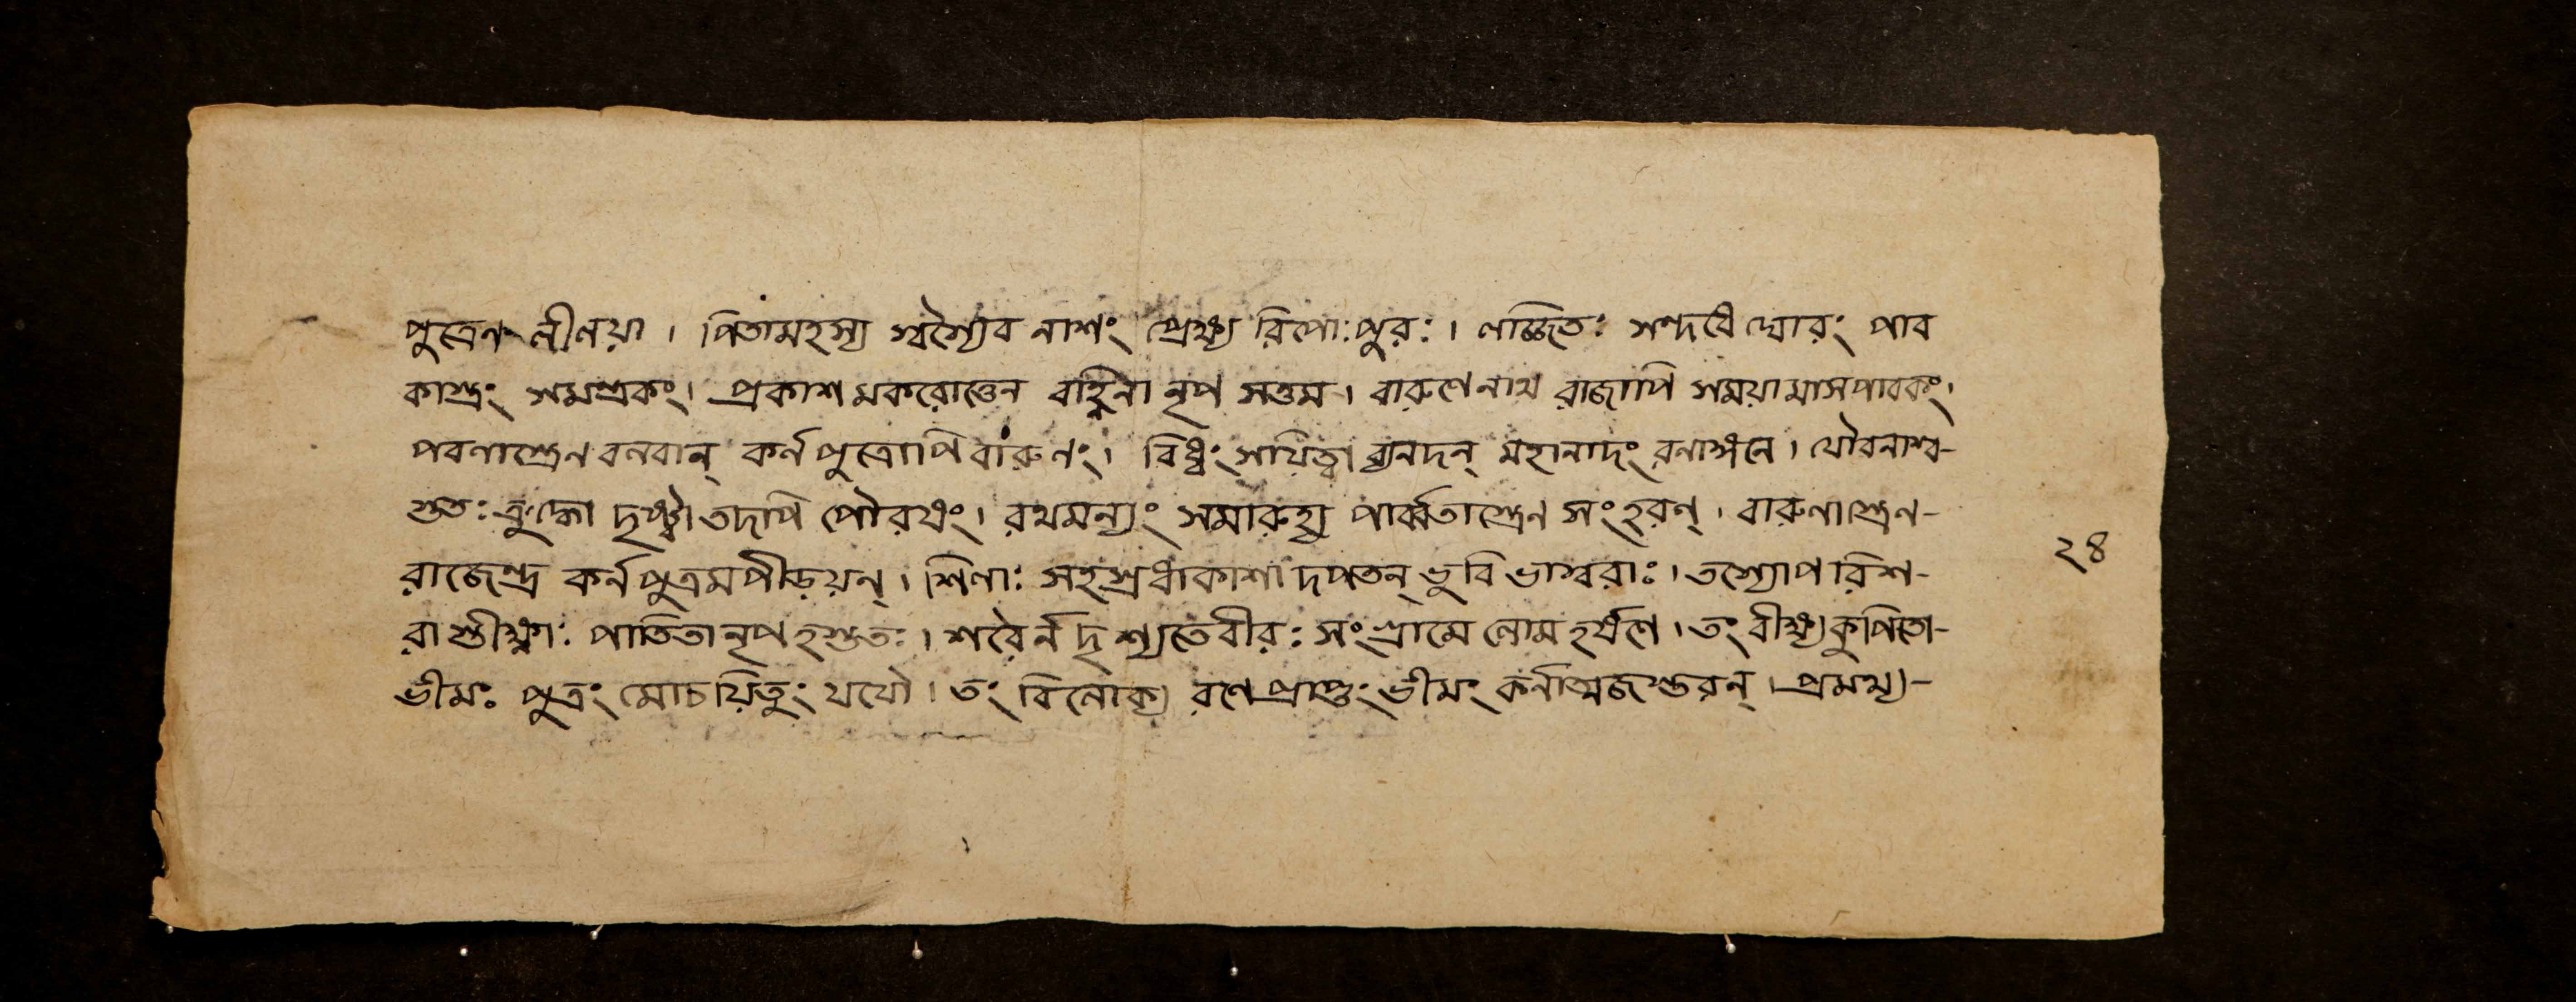 পুত্রেণ লীলয়া । পিতামহস্য স্বস্যৈব নাশং প্রেক্ষ্য রিপোঃপুরঃ । লজ্জিতঃ সন্দধে ঘোরং পাব
কাস্ত্রং সমন্ত্রকং । প্রকাশমকরোত্তেন বহ্নিনা নৃপ সত্তম । বারুণেনাথ রাজাপি সময়ামাসপাবকং ।
পবনাস্ত্রেন বলবান্ কর্নপুত্রোপি বারুনং । বিধ্বংসযিত্বা ব্যনদন্ মহানাদং রনাঙ্গনে । যৌবনাশ্ব-
সুতঃ ক্রুদ্ধো দৃষ্ট্বা তদপি পৌরষং । রথমন্যং সমারুহ্য পার্ব্বতাস্ত্রেন সংহরন্ । বারুনাস্ত্রেন-
রাজেন্দ্র কর্নপুত্রমপীড়য়ন্ । শিলাঃ সহস্রধাকাশা দপতন্ ভুবি ভাস্বরাঃ । তস্যোপরিশ-
রাস্তীক্ষ্ণাঃ পাতিতা নৃপ হস্ততঃ । শরৈর্ন দৃশ্যতেবীরঃ সংগ্রামে লোমহর্ষণে । তং বীক্ষ্য কুপিতো-
ভীমঃ পুত্রং মোচয়িতুং যযৌ । তং বিলোক্য রণে প্রাপ্তং ভীমং কর্নাত্মজস্তরন্ । প্রমথ্য-
২৪